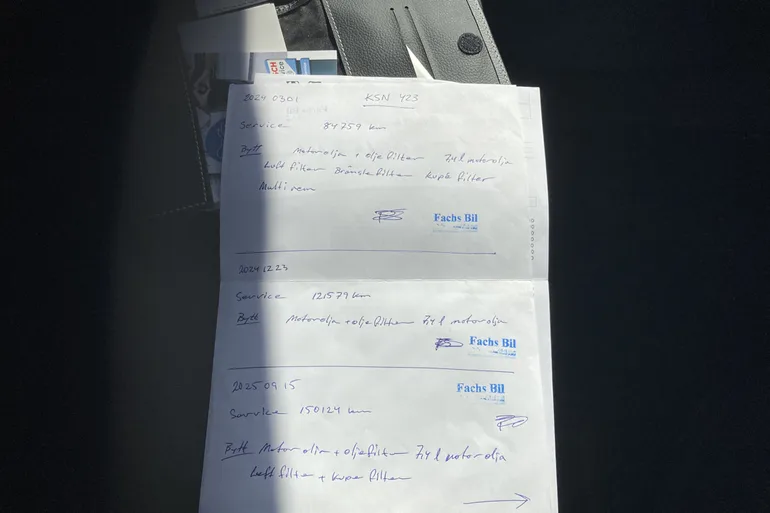 2024 0301 KSN 423
Service 84759 km
Bytt Motorolja + oljefilter 7,4 l motorolja
Luft filter Bränsle filter Kupé filter
Multi rem
Fachs Bil
2024 12 23
Service 121579 km
Bytt Motorolja + oljefilter 7,4 l motorolja
Fachs Bil
2025 09 15 Fachs Bil
Service 150124 km
Bytt Motorolja + oljefilter 7,4 l motorolja
Luft filter + kupe filter